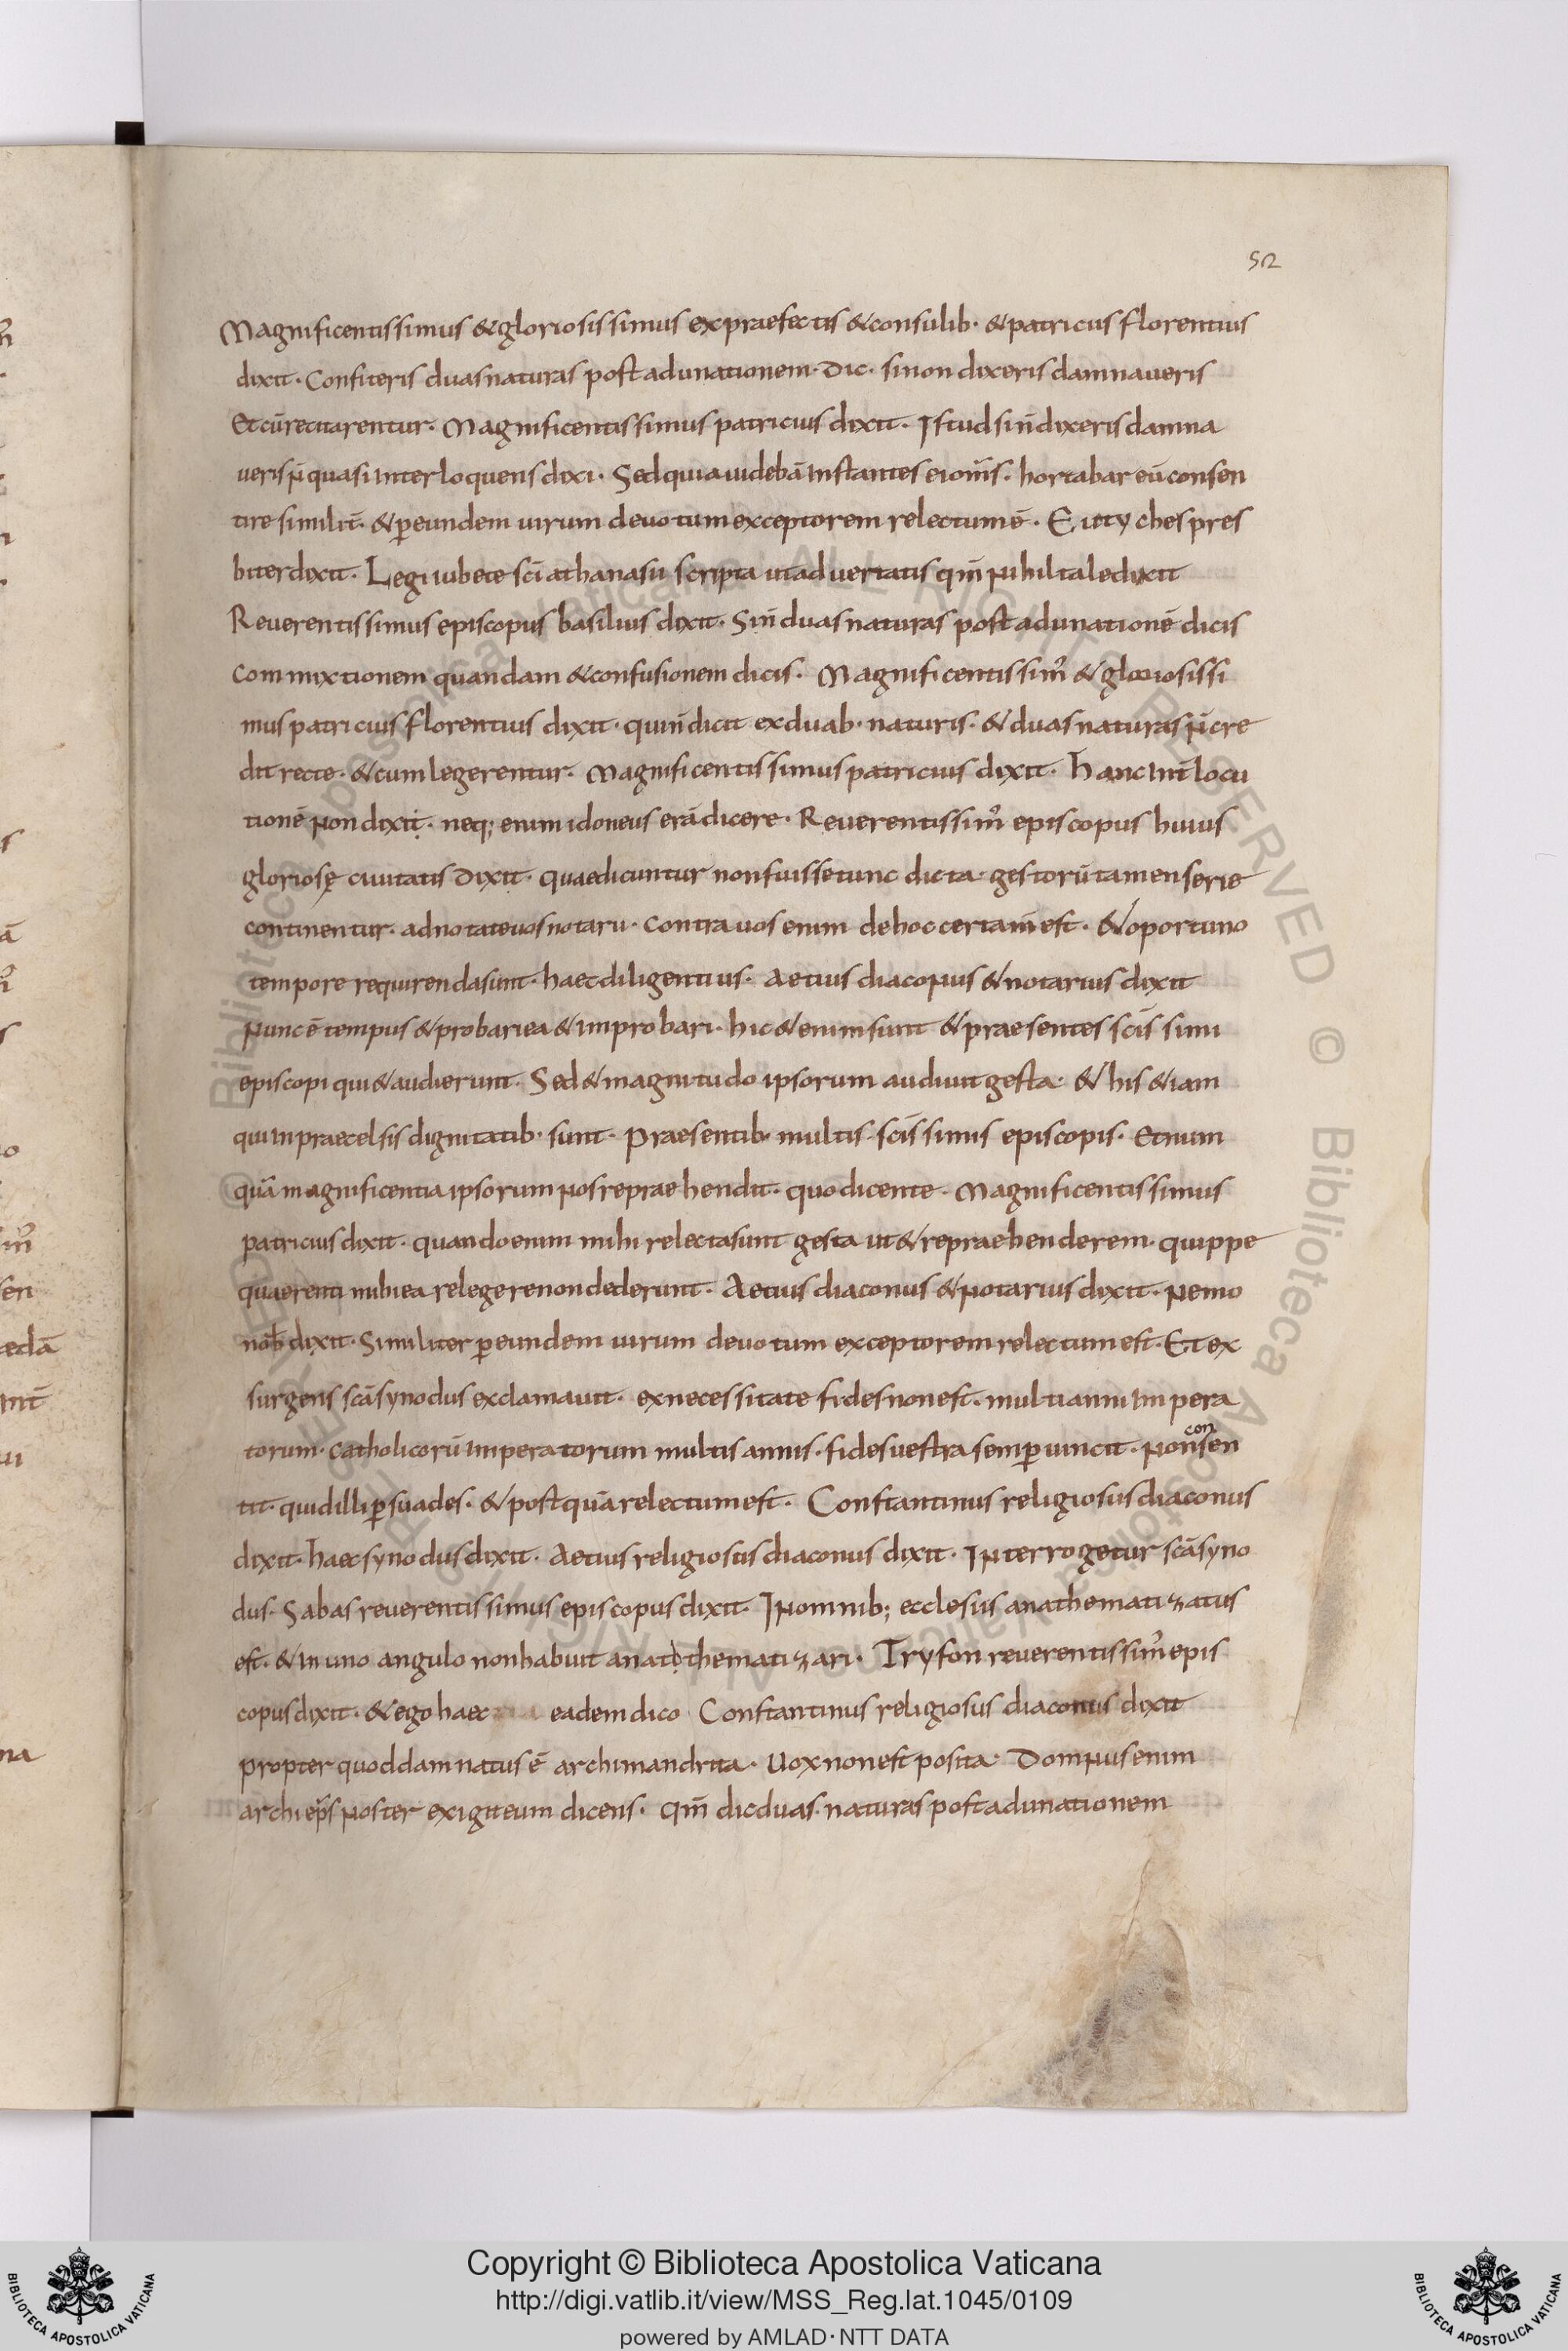 52
Magnificentissimus & gloriosissimus expraefectis & consulib· & patricus florentius
dixit · Confiteris duas naturas post adunationem · Dic · si non dixeris damnaueris
Et cū recitarentur · Magnificentissimus patricius dixit · Istud si n̄ dixeris damna
ueris n̄ quasi interloquens dixi · Sed quia uidebā instantes ei om̄s · hortabar eū consen
tire similit̄ · & p̄ eundem uirum deuotum exceptorem relectum ē · Eutyches pres
biter dixit · Legi iubete sc̄i athanasii scripta ut aduertatis qm̄ nihil tale dixit
Reuerentissimus episcopus basilius dixit · Si n̄ duas naturas post adunationē dicis
commixtionem quandam & confusionem dicis · Magnificentissim' & gloriosissi
mus patricius florentius dixit · qui n̄ dicit ex duab· naturis · & duas naturas n̄ cre
dit recte · & cum legerentur · Magnificentissimus patricius dixit · hanc int̄locu
tionē non dixit · neq; enim idoneus erā dicere · Reuerentissim' episcopus huius
gloriosę ciuitatis dixit · quae dicuntur non fuisse tunc dicta · gestorū tamen serie
continentur · adnotate uos notarii · contra uos enim de hoc certam̄ est · & oportuno
tempore requirenda sunt · haec diligentius · Aetius diaconus & notarius dixit
Nunc ē tempus & probari ea & improbari · hic & enim sunt & praesentes sc̄issimi
episcopi qui & audierunt · Sed & magnitudo ipsorum audiuit gesta · & his &iam
qui in praecelsis dignitatib· sunt · praesentib· multis sc̄issimis episcopis · Et num
quā magnificentia ipsorum nos repraehendit · quo dicente · Magnificentissimus
patricius dixit · quando enim mihi relecta sunt gesta ut & repraehenderem · quippe
quaerenti mihi ea relegere non dederunt · Aetius diaconus & notarius dixit · nemo
nob̄ dixit · Similiter p̄ eundem uirum deuotum exceptorem relectum est · Et ex
surgens sc̄a synodus exclamauit · ex necessitate fides non est · multi anni impera
torum · catholicorū imperatorum multis annis · fides uestra semp̄ uincit · Non consen
tit · quid illi p̄suades · & postquā relectum est · Constantinus religiosus diaconus
dixit · haec synodus dixit · Aetius religiosus diaconus dixit · Interrogetur sc̄a syno
dus · Sabas reuerentissimus episcopus dixit · In omnib; ecclesiis anathematizatus
est · & in uno angulo non habuit anatothematizari · Tryfon reuerentissim' epis
copus dixit · & ego haec eadem dico Constantinus religiosus diaconus dixit
propter quod damnatus ē archimandrita · Uox non est posita · Domnus enim
archiep̄s noster exigit eum dicens · qm̄ dic duas naturas post adunationem
Copyright © Biblioteca Apostolica Vaticana
http://digi.vatlib.it/view/MSS_Reg.lat.1045/0109
powered by AMLAD · NTT DATA
BIBLIOTECA APOSTOLICA VATICANA
BIBLIOTECA APOSTOLICA VATICANA